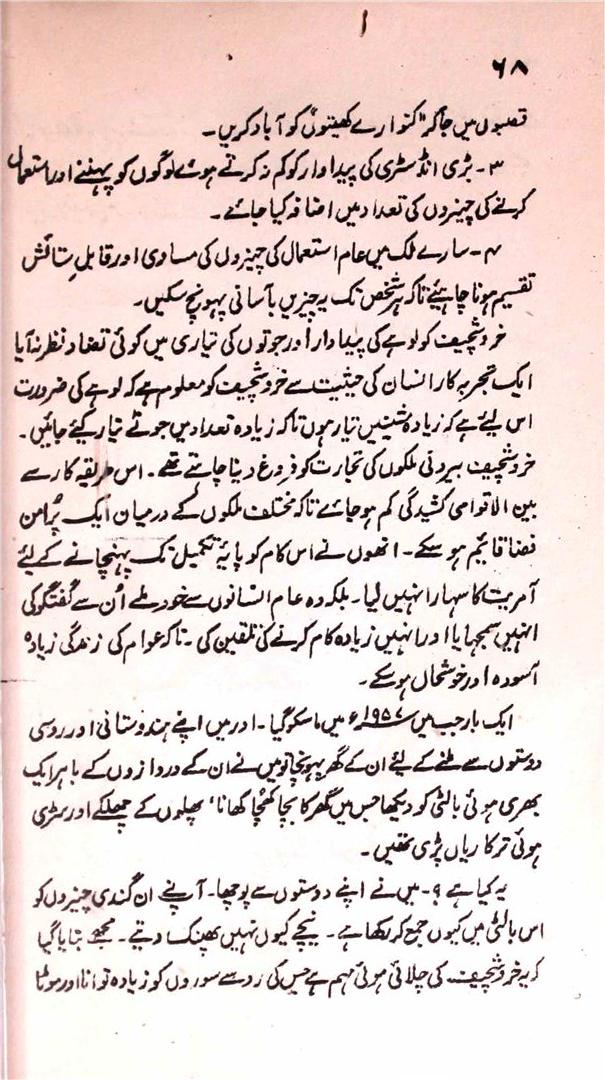 ۶۸
قصبوں میں جاکر "کنوارے کھیتوں" کو آباد کریں۔
۳- بڑی انڈسٹری کی پیداوار کو کم نہ کرتے ہوئے لوگوں کو پہننے اور استعمال
کرنے کی چیزوں کی تعداد میں اضافہ کیا جائے۔
۴- سارے ملک میں عام استعمال کی چیزوں کی مساوی اور قابلِ ستائش
تقسیم ہونا چاہیئے تاکہ ہر شخص تک یہ چیزیں بآسانی پہونچ سکیں۔
خروشچیف کو لوہے کی پیداوار اور جوتوں کی تیاری میں کوئی تضاد نظر نہ آیا
ایک تجربہ کار انسان کی حیثیت سے خروشچیف کو معلوم ہے کہ لوہے کی ضرورت
اس لیئے ہے کہ زیادہ مشینیں تیار ہوں تاکہ زیادہ تعداد میں جوتے تیار کیئے جائیں۔
خروشچیف بیرونی ملکوں کی تجارت کو فروغ دینا چاہتے تھے۔ اس طریقۂ کار سے
بین الاقوامی کشیدگی کم ہو جائے تاکہ مختلف ملکوں کے درمیان ایک پُرامن
فضا قائیم ہو سکے۔ انھوں نے اس کام کو پایۂ تکمیل تک پہنچانے کے لیئے
آمریت کا سہارا نہیں لیا۔ بلکہ وہ عام انسانوں سے خود ملے اُن سے گفتگو کی
انہیں سمجھایا اور انہیں زیادہ کام کرنے کی تلقین کی۔ تاکہ عوام کی زندگی زیادہ
آسودہ اور خوشحال ہو سکے۔
ایک بار جب میں ۱۹۵۷ء میں ماسکو گیا۔ اور میں اپنے ہندوستانی اور روسی
دوستوں سے ملنے کے لیئے ان کے گھر پہونچا تو میں نے ان کے دروازوں کے باہر ایک
بھری ہوئی بالٹی کو دیکھا جس میں گھر کا بچا کھچا کھانا، پھلوں کے چھلکے اور سڑی
ہوئی ترکاریاں پڑی تھیں۔
یہ کیا ہے ؟- میں نے اپنے دوستوں سے پوچھا۔ آپ نے ان گندی چیزوں کو
اس بالٹی میں کیوں جمع کر رکھا ہے۔ نیچے کیوں نہیں پھینک دیتے۔ مجھے بتایا گیا
کہ یہ خروشچیف کی چلائی ہوئی مہم ہے جس کی رو سے سوروں کو زیادہ توانا اور موٹا